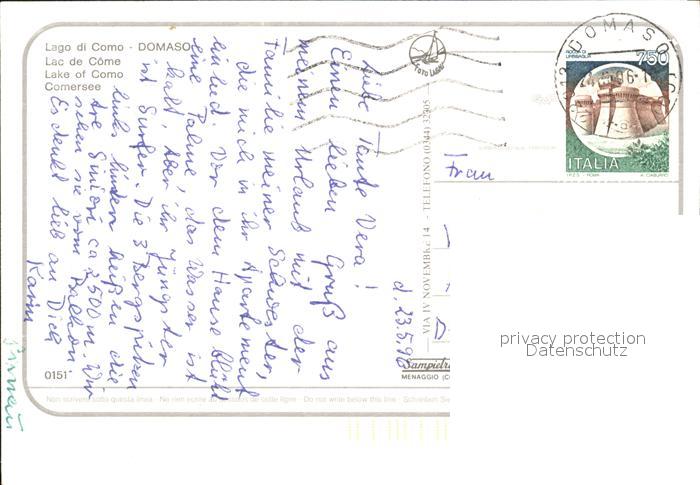 Lago di Como - DOMASO
Lac de Côme
Lake of Como
Comersee
Foto Lario
DOMASO
ROCCA DI
URBISAGLIA
750
ITALIA
I.P.Z.S. - ROMA
Liebe Tante Vera!
Einen lieben Gruß aus
meinem Urlaub mit der
Familie meiner Schwester,
die mich in ihr Apartement
einlud. Vor dem Hause blüht
eine Palme, das Wasser ist
kalt aber ihr Jüngster
ist Surfer. Die 3 Bergspitzen
links hinten heißen die
ca 2500 m. Wir
sehen sie vom Balkon.
Es denkt lieb an Dich
Karin
d. 23.5.96
Frau
VIA IV NOVEMBRE 14 - TELEFONO (0344) 32505
Sampietro
MENAGGIO (CO
0151
Non scrivere sotto questa linea · Ne rien écrire au dessous de cette ligne · Do not write below this line · Schreiben Sie
privacy protection
Datenschutz